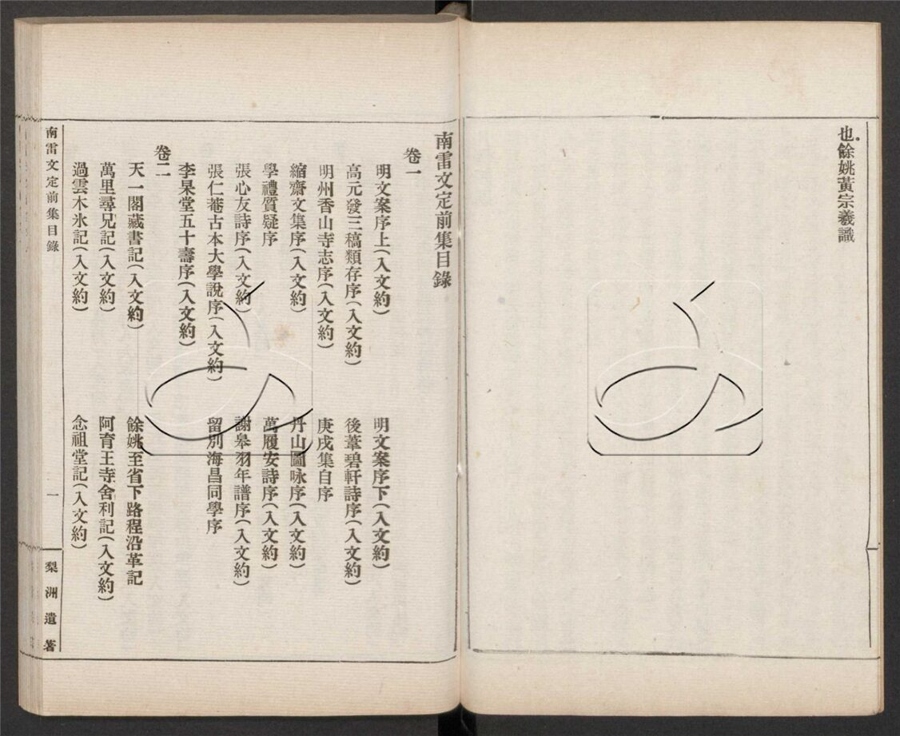 也餘姚黃宗羲識
南雷文定前集目錄
卷一
明文案序上(入文約)
明文案序下(入文約)
高元發三稿類存序(入文約)
後葦碧軒詩序(入文約)
明州香山寺志序(入文約)
庚戌集自序
縮齋文集序(入文約)
丹山圖咏序(入文約)
學禮質疑序
萬履安詩序(入文約)
張心友詩序(入文約)
謝皋羽年譜序(入文約)
張仁菴古本大學說序(入文約)
留別海昌同學序
李杲堂五十壽序(入文約)
卷二
天一閣藏書記(入文約)
餘姚至省下路程沿革記
萬里尋兄記(入文約)
阿育王寺舍利記(入文約)
過雲木氷記(入文約)
念祖堂記(入文約)
南雷文定前集目錄
一
梨洲遺著